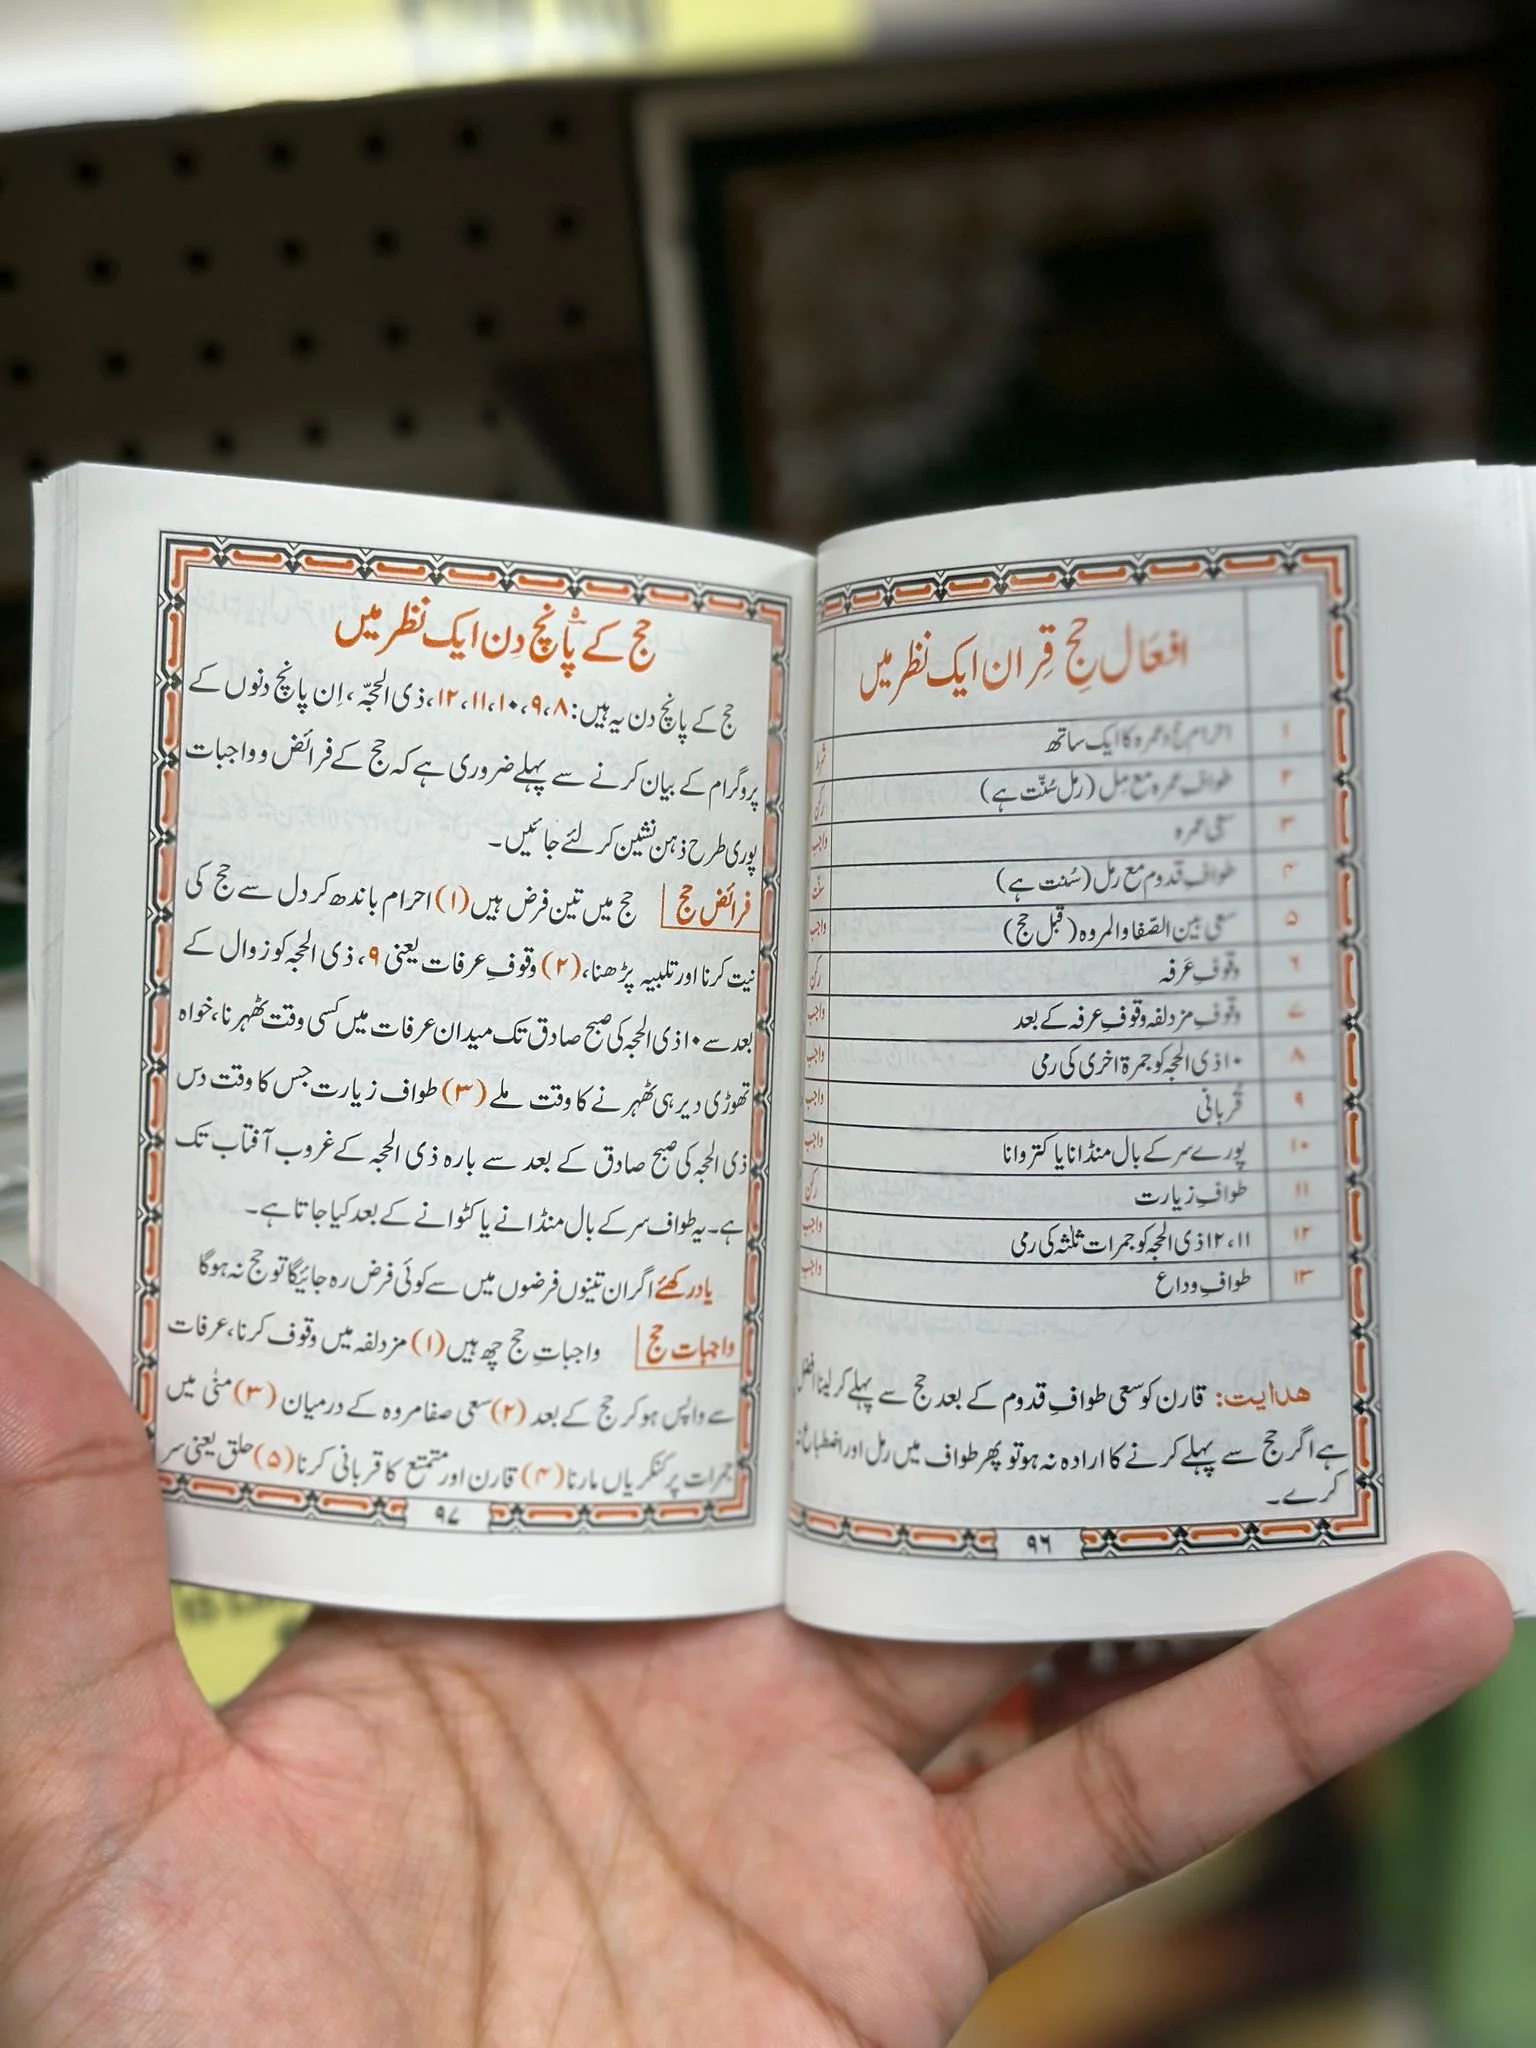 افعال حجِ قِران ایک نظر میں
۱ احرام حج وعمرہ کا ایک ساتھ شرط
۲ طواف عمرہ مع رمل (رمل سُنّت ہے) رکن
۳ سعی عمرہ واجب
۴ طوافِ قدوم مع رمل (سُنت ہے) سنّت
۵ سعی بین الصّفا والمروہ (قبل حج) واجب
۶ وقوفِ عَرفہ رکن
۷ وقوفِ مزدلفہ وقوفِ عرفہ کے بعد واجب
۸ ۱۰ ذی الحجہ کو جمرۃ اخری کی رمی واجب
۹ قُربانی واجب
۱۰ پورے سر کے بال منڈانا یا کتروانا واجب
۱۱ طوافِ زیارت رکن
۱۲ ۱۱،۱۲ ذی الحجہ کو جمرات ثلثہ کی رمی واجب
۱۳ طوافِ وداع واجب
ھدایت: قارن کو سعی طوافِ قدوم کے بعد حج سے پہلے کر لینا افضل
ہے اگر حج سے پہلے کرنے کا ارادہ نہ ہو تو پھر طواف میں رمل اور اضطباع نہ
کرے۔
۹۶
حج کے پانچ دِن ایک نظر میں
حج کے پانچ دن یہ ہیں: ۸،۹،۱۰،۱۱،۱۲، ذی الحجّہ، اِن پانچ دنوں کے
پروگرام کے بیان کرنے سے پہلے ضروری ہے کہ حج کے فرائض وواجبات
پوری طرح ذہن نشین کر لئے جائیں۔
فرائض حج حج میں تین فرض ہیں (۱) احرام باندھ کر دل سے حج کی
نیت کرنا اور تلبیہ پڑھنا، (۲) وقوفِ عرفات یعنی ۹، ذی الحجہ کو زوال کے
بعد سے ۱۰ ذی الحجہ کی صبح صادق تک میدان عرفات میں کسی وقت ٹھہرنا، خواہ
تھوڑی دیر ہی ٹھہرنے کا وقت ملے (۳) طواف زیارت جس کا وقت دس
ذی الحجہ کی صبح صادق کے بعد سے بارہ ذی الحجہ کے غروب آفتاب تک
ہے۔ یہ طواف سر کے بال منڈانے یا کٹوانے کے بعد کیا جاتا ہے۔
یاد رکھئے اگر ان تینوں فرضوں میں سے کوئی فرض رہ جائیگا تو حج نہ ہوگا
واجبات حج واجباتِ حج چھ ہیں (۱) مزدلفہ میں وقوف کرنا، عرفات
سے واپس ہو کر حج کے بعد (۲) سعی صفا مروہ کے درمیان (۳) منٰی میں
جمرات پر کنکریاں مارنا (۴) قارن اور متمتع کا قربانی کرنا (۵) حلق یعنی سر
۹۷